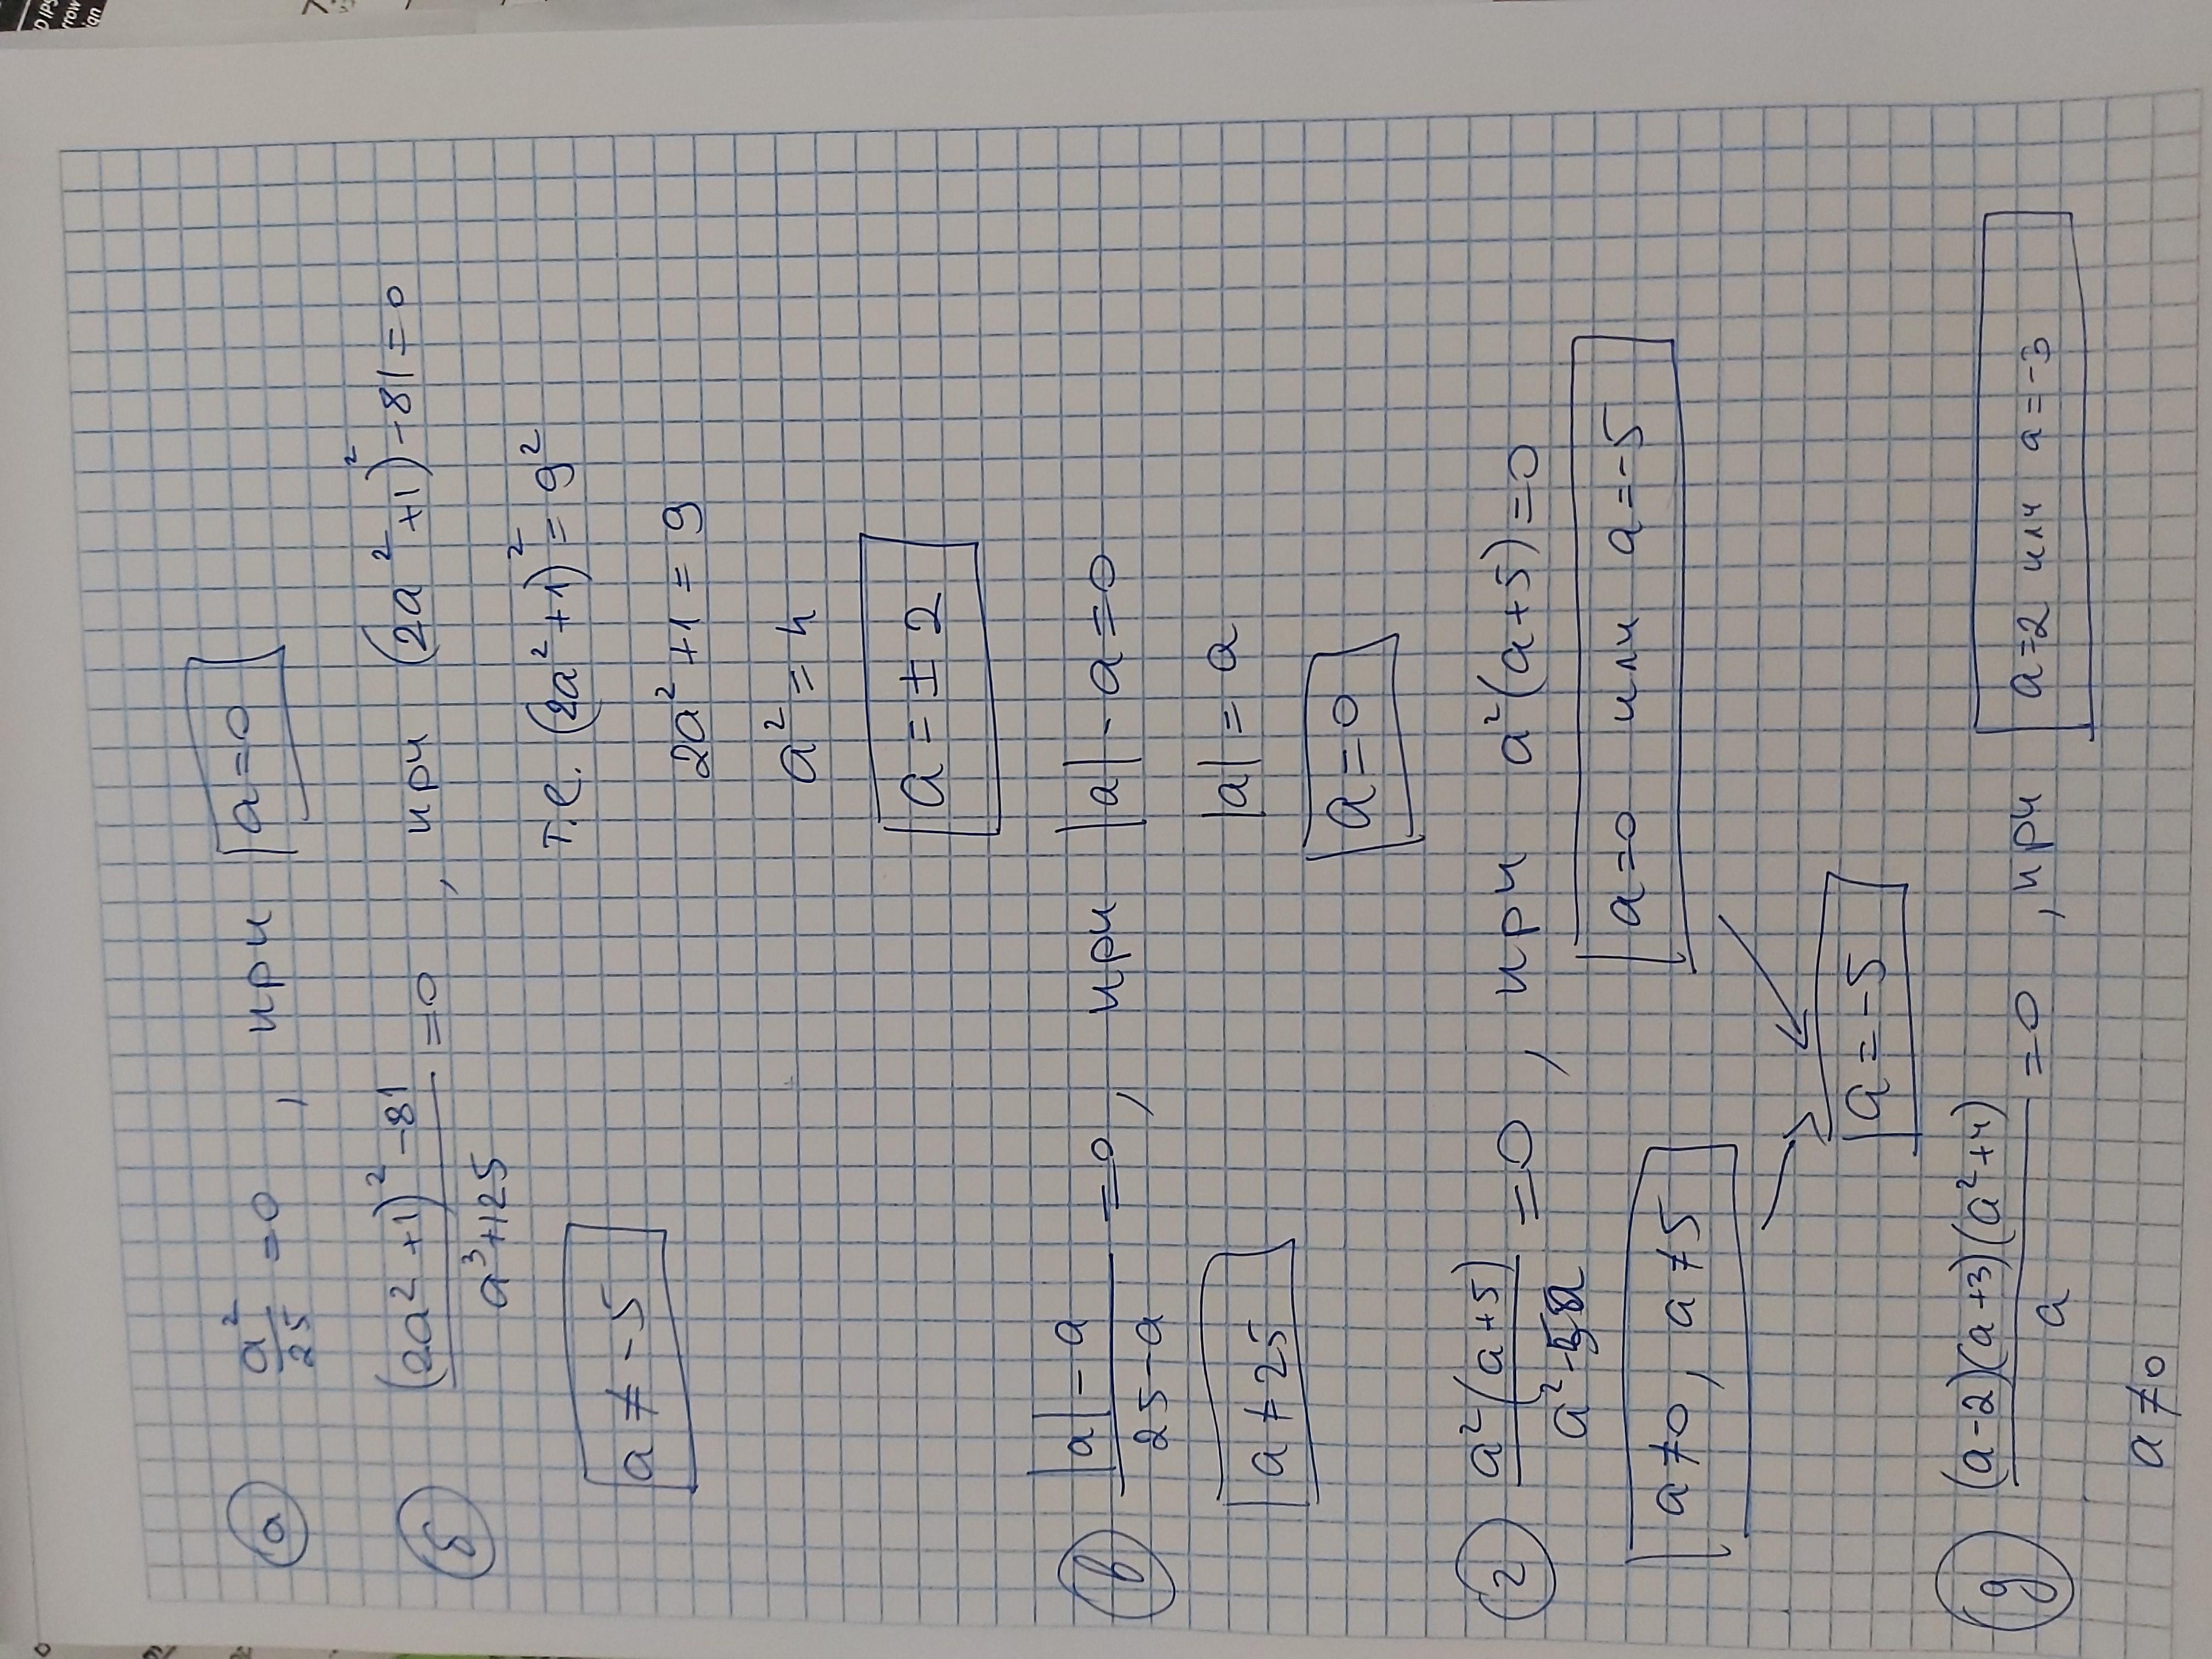 а a²/25 = 0 , при a=0
б ((2a²+1)²-81)/(a³+125) = 0 , при (2a²+1)²-81=0
a ≠ -5 т.е. (2a²+1)² = 9²
2a²+1 = 9
a² = 4
a = ±2
в (|a|-a)/(25-a) = 0 , при |a|-a=0
a ≠ 25 |a| = a
a=0
г a²(a+5)/(a²-5a) = 0 , при a²(a+5)=0
a≠0, a≠5 a=0 или a=-5
a=-5
д (a-2)(a+3)(a²+4)/a = 0 , при a=2 или a=-3
a≠0